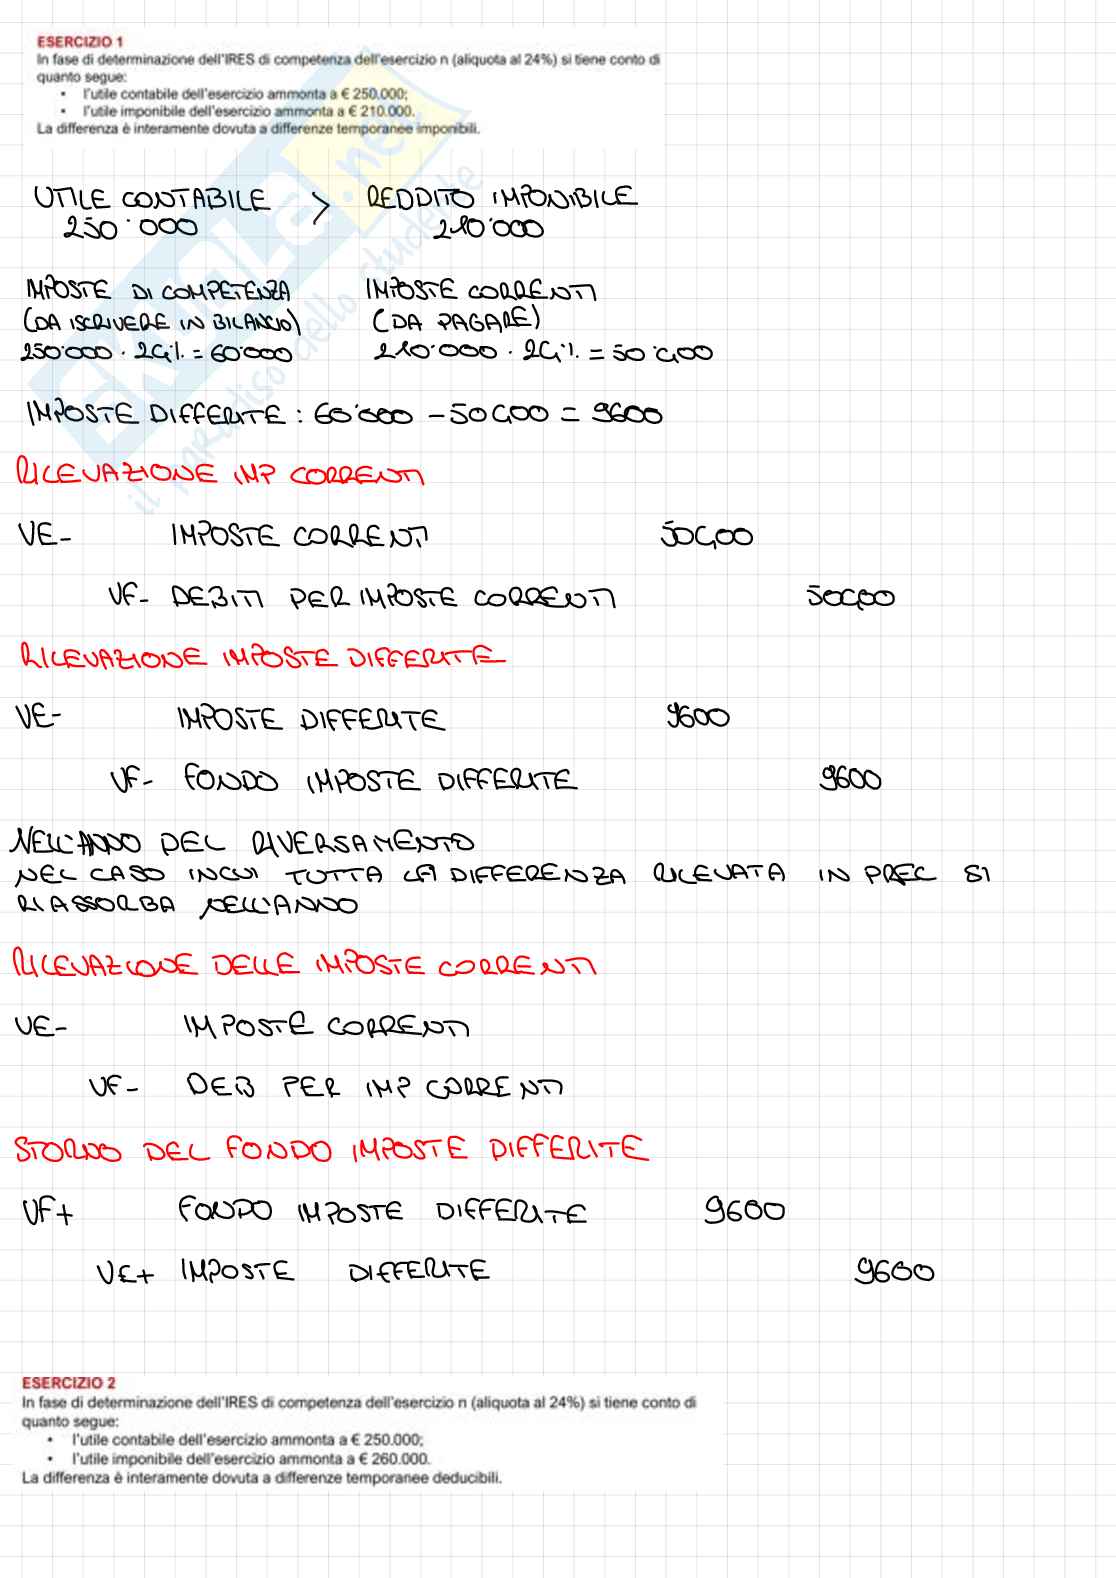 ESERCIZIO 1
In fase di determinazione dell'IRES di competenza dell'esercizio n (aliquota al 24%) si tiene conto di
quanto segue:
• l'utile contabile dell'esercizio ammonta a € 250.000;
• l'utile imponibile dell'esercizio ammonta a € 210.000.
La differenza è interamente dovuta a differenze temporanee imponibili.
UTILE CONTABILE > REDDITO IMPONIBILE
250'000 210'000
IMPOSTE DI COMPETENZA IMPOSTE CORRENTI
(DA ISCRIVERE IN BILANCIO) (DA PAGARE)
250'000 · 24% = 60'000 210'000 · 24% = 50'400
IMPOSTE DIFFERITE : 60'000 - 50400 = 9600
RILEVAZIONE IMP CORRENTI
VE- IMPOSTE CORRENTI 50400
VF- DEBITI PER IMPOSTE CORRENTI 50400
RILEVAZIONE IMPOSTE DIFFERITE
VE- IMPOSTE DIFFERITE 9600
VF- FONDO IMPOSTE DIFFERITE 9600
NELL'ANNO DEL RIVERSAMENTO
NEL CASO IN CUI TUTTA LA DIFFERENZA RILEVATA IN PREC SI
RIASSORBA NELL'ANNO
RILEVAZIONE DELLE IMPOSTE CORRENTI
VE- IMPOSTE CORRENTI
VF- DEB PER IMP CORRENTI
STORNO DEL FONDO IMPOSTE DIFFERITE
VF+ FONDO IMPOSTE DIFFERITE 9600
VE+ IMPOSTE DIFFERITE 9600
ESERCIZIO 2
In fase di determinazione dell'IRES di competenza dell'esercizio n (aliquota al 24%) si tiene conto di
quanto segue:
• l'utile contabile dell'esercizio ammonta a € 250.000;
• l'utile imponibile dell'esercizio ammonta a € 260.000.
La differenza è interamente dovuta a differenze temporanee deducibili.
SKUOLA.net
il paradiso dello studente